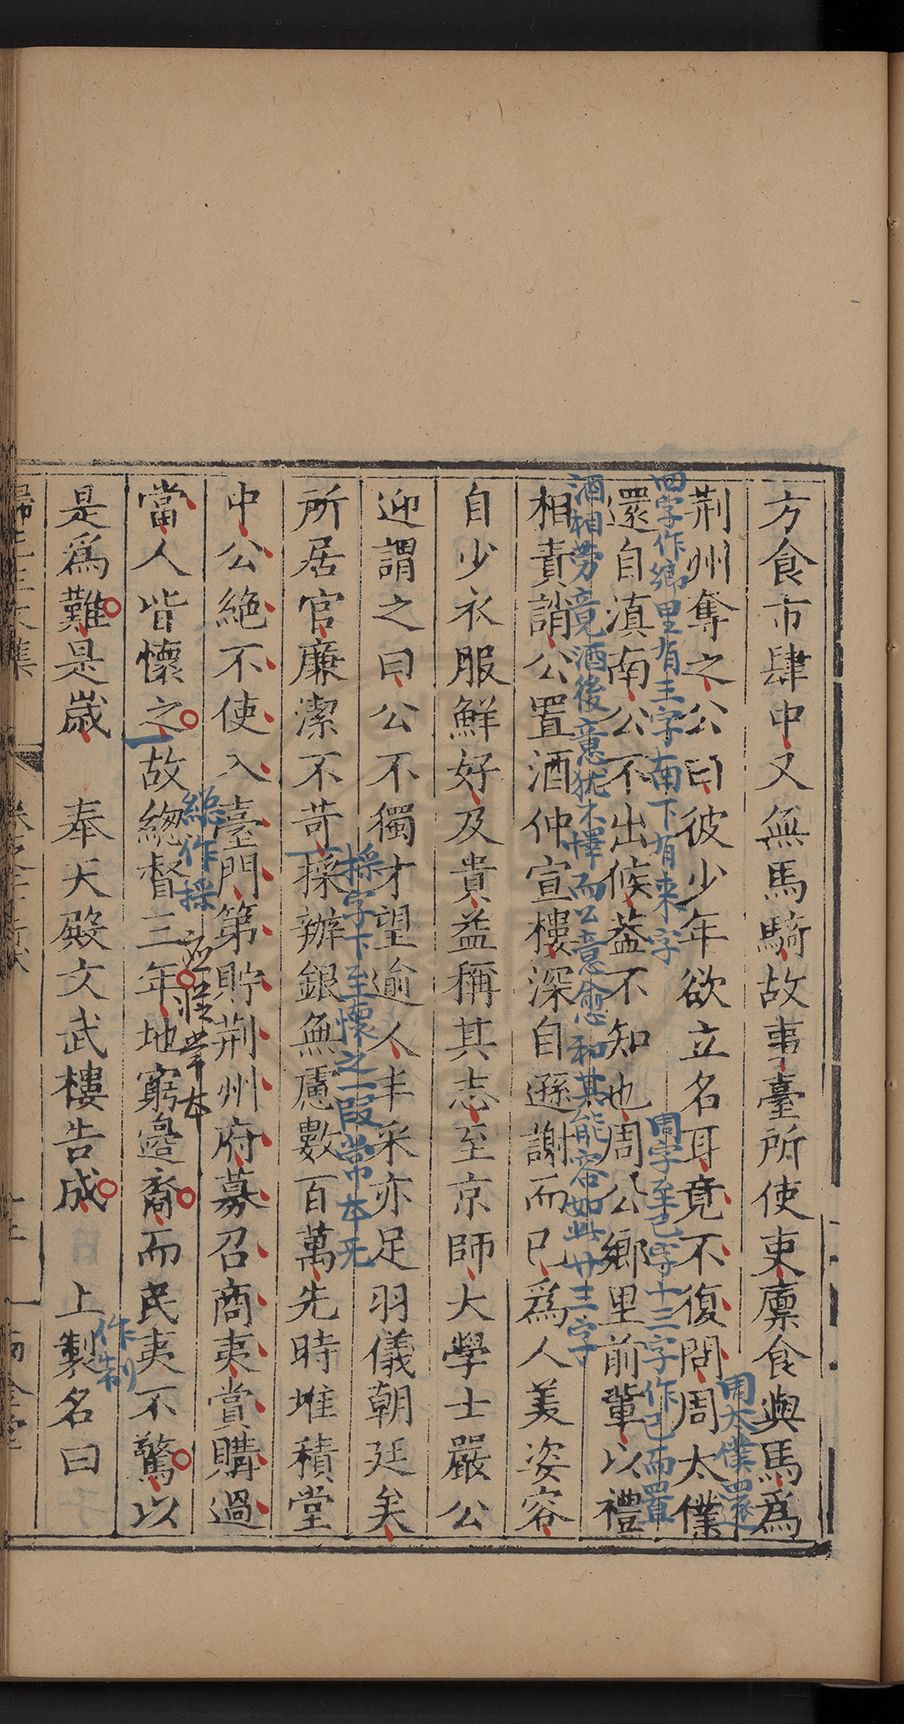 方食市肆中又無馬騎故事臺所使吏廪食與馬爲
荆州奪之公曰彼少年欲立名耳竟不復問周太僕
還自滇南公不出候葢不知也周公鄉里前輩以禮
相責誚公置酒仲宣樓深自遜謝而已爲人美姿容
自少衣服鮮好及貴益稱其志至京師大學士嚴公
迎謂之曰公不獨才望逾人丰采亦足羽儀朝廷矣
所居官廉潔不苛採辦銀無慮數百萬先時堆積堂
中公絶不使入臺門第貯荆州府募召商夷賞購過
當人皆懷之故緫督三年地窮邉裔而民夷不驚以
是爲難是歲 奉天殿文武樓告成 上製名曰
周太僕四字作鄉里有三字南下有来字
周字至已字十三字作已而置
酒相勞竟酒後意猶不懌而公意愈和其能容如此廿三字
採字下至懷之一段常本无
緫作採
作制